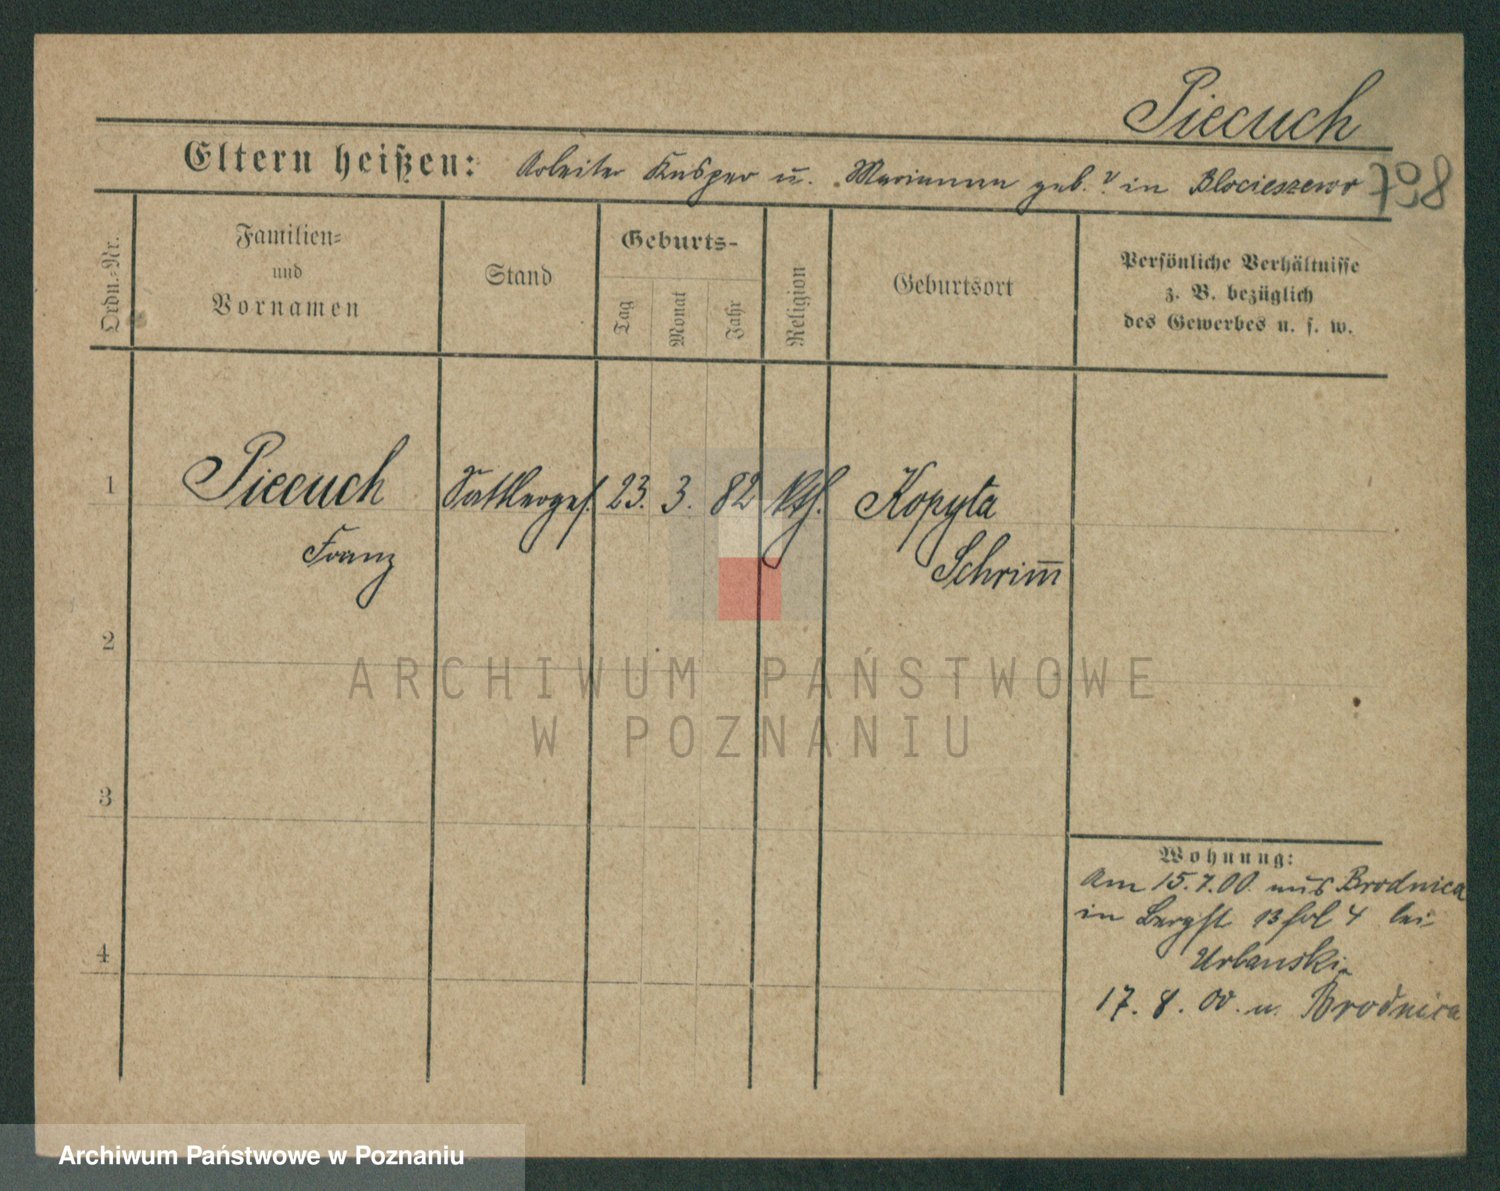 Piecuch
Eltern heißen: Arbeiter Kasper u. Marianna geb. ? in Blocieszewo
798
Ordn.-Nr.
Familien-
und
Vornamen
Stand
Geburts-
Tag
Monat
Jahr
Religion
Geburtsort
Persönliche Verhältnisse
z. B. bezüglich
des Gewerbes u. s. w.
1 Piecuch Sattlerges. 23. 3. 82 kth. Kopyta
Franz Schrim̅
2
3
4
Wohnung:
Am 15.7.00. aus Brodnica
in Bergst 13 hof 4 bei
Urbanski
17. 8. 00. n. Brodnica
ARCHIWUM PAŃSTWOWE
W POZNANIU
Archiwum Państwowe w Poznaniu